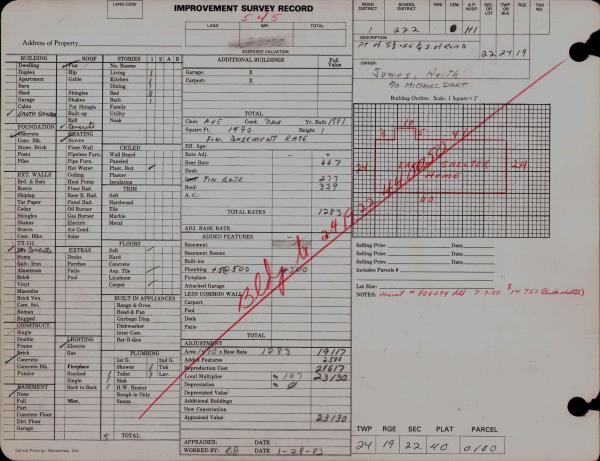 IMPROVEMENT SURVEY RECORD
LAND CODE
545
LAND
IMP.
TOTAL
Address of Property
ASSESSED VALUATION
ROAD DISTRICT
SCHOOL DISTRICT
FIRE
CEM.
HOSP.
SEC OR LOT
TWP. OR BLK.
RGE
TAX NO.
222
0
H1
DESCRIPTION
22 24 19
OWNER
James, Keith
% MICHAEL DART
Building Outline Scale, 1 Square = 2'
10
5
24
EARTH SHELTER
HOME
24
60
BUILDING
ROOF
STORIES 1 2 A B
Dwelling
Flat
No. Rooms
Duplex
Hip
Living
Apartment
Gable
Kitchen
Barn
Dining
Shed
Shingles
Bed
2
Garage
Shakes
Bath
1
Cabin
Pat. Shingle
Family
EARTH SHELTER
Built-up
Utility
Roll
Nook
FOUNDATION
Concrete
Concrete
HEATING
Conc. Blk.
Stoves
CEILED
Stone, Brick
Fireplace
Wall Board
Posts
Pipeless Furn.
Paneled
Piers
Pipe Furn.
Plast. Brd.
Hot Water
Ceiling
EXT. WALLS
Radiant
Plaster
Bd. & Bats
Heat Pump
Insulation
Rustic
Floor Rad.
TRIM
Shiplap
Base B. Rad.
Soft
Tar Paper
Panel Rad.
Hardwood
Cedar
Oil Burner
Tile
Shingles
Gas Burner
Marble
Shakes
Electric
Metal
Stucco
Air Cond.
Conc. Blks.
Solar
FLOORS
TX-111
EXTRAS
Soft
Concrete
Decks
Hard
Stone
Porches
Concrete
Galv. Iron
Patio
Asp. Tile
Aluminum
Pool
Linoleum
Brick
Carpet
Vinyl
Masonite
BUILT IN APPLIANCES
Brick Ven.
Range & Oven
Com. Sel.
Hood & Fan
Roman
Garbage Disp.
Rugged
Dishwasher
CONSTRUCT.
Inter Com.
Single
Bar-B-Que
Double
LIGHTING
Frame
Electric
PLUMBING
Brick
Gas
1st G.
2nd G.
Concrete
Shower
Tub
Concrete Blk.
Fireplace
Toilet
Lav.
Pumice
Stacked
Sink
Steel
Single
H.W. Heater
BASEMENT
Back to Back
Rough-in Only
None
Sauna
Full
Misc.
Part
Concrete Floor
Dirt Floor
Garage
TOTAL
Central Printing - Wenatchee, WA
ADDITIONAL BUILDINGS
Full Value
Garage: X
Carport: X
TOTAL
Class AVE Cond. New Yr. Built 1981
Square Ft. 1490 Height 1
FIN. BASEMENT RATE
Eff. Age:
Rate Adj. — +
Base Rate 667
Roof:
FIN RATE 277
Roof: 339
A. C.:
TOTAL RATES 1283
ADJ. BASE RATE
ADDED FEATURES — +
Basement
Basement Rooms
Built-ins
Plumbing +5@500 2500
Fireplace
Attached Garage
LESS COMMON WALL
Carport
Pool
Deck
Patio
TOTAL
ADJUSTMENT
Area 1490 x Base Rate 1283 19117
Added Features 2500
Reproduction Cost 21617
Local Multiplier % 107 23130
Depreciation % 0
Depreciated Value
Additional Buildings
New Construction
Appraised Value 23130
APPRAISER: DATE
WORKED BY: DATE 1-28-82
Bldg to 241922440050
Selling Price Date
Selling Price Date
Selling Price Date
Includes Parcels #
Lot Size:
TWP RGE SEC PLAT PARCEL
24 19 22 40 0100